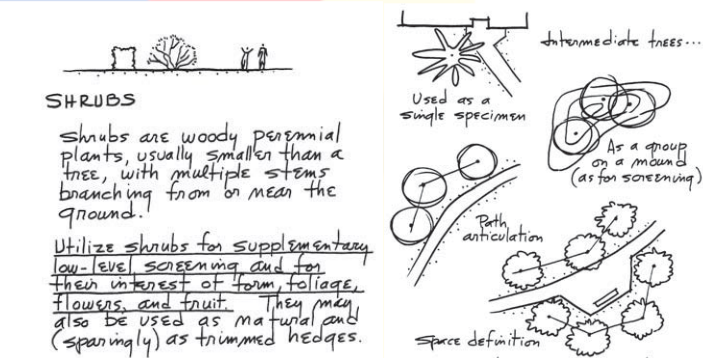 SHRUBS
Shrubs are woody perennial
plants, usually smaller than a
tree, with multiple stems
branching from or near the
ground.
Utilize shrubs for supplementary
low-level screening and for
their interest of form, foliage,
flowers, and fruit. They may
also be used as natural and
(sparingly) as trimmed hedges.
Intermediate trees...
Used as a
single specimen
As a group
on a mound
(as for screening)
Path
articulation
Space definition